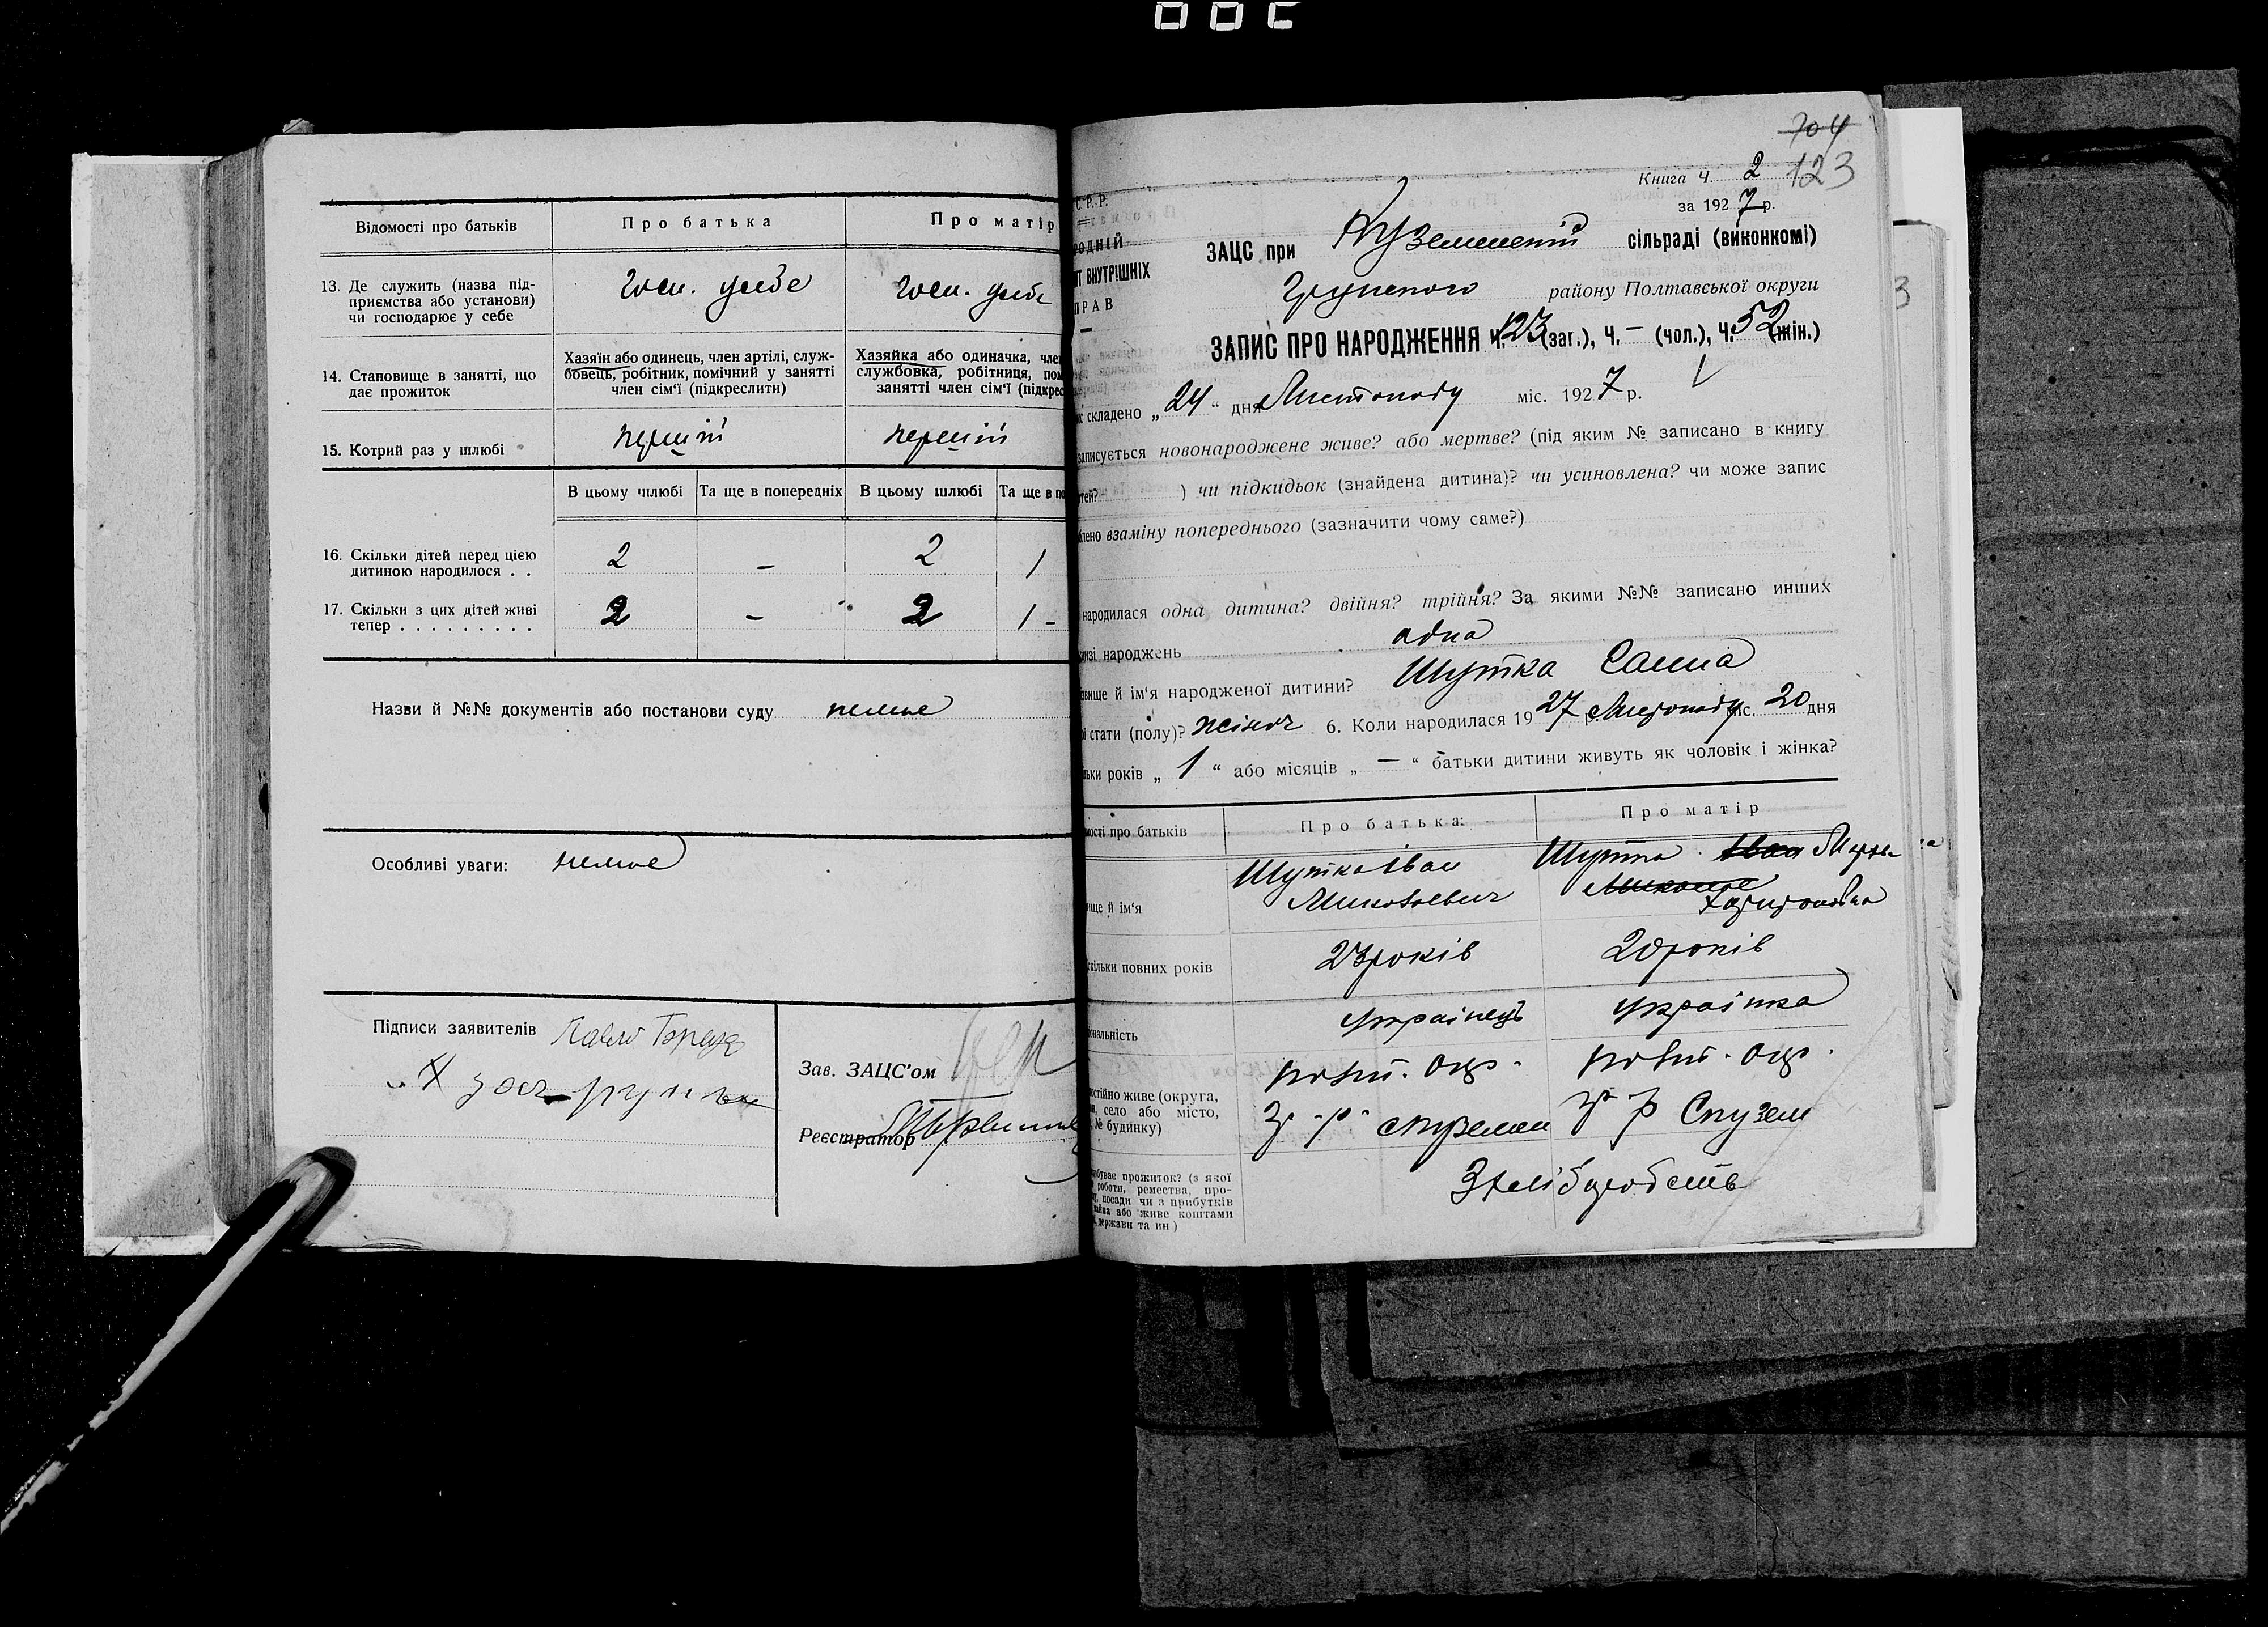 Відомості про батьків Про батька Про матір
13. Де служить (назва під-
приємства або установи)
чи господарює у себе
госп. у себе госп. у себе
14. Становище в занятті, що
дає прожиток
Хазяїн або одинець, член артілі, служ-
бовець, робітник, помічний у занятті
член сім'ї (підкреслити)
Хазяйка або одиначка, член
службовка, робітниця, пом
занятті член сім'ї (підкрес
15. Котрий раз у шлюбі перший перший
В цьому шлюбі Та ще в попередніх В цьому шлюбі Та ще в по
16. Скільки дітей перед цією
дитиною народилося . . 2 – 2 1
17. Скільки з цих дітей живі
тепер . . . . . . . . . 2 – 2 1 -
Назви й №№ документів або постанови суду немає
Особливі уваги: немає
Підписи заявителів Павло
Х
Зав. ЗАЦС'ом
Реєстратор
704
Книга Ч. 2 123
за 1927 р.
С.Р.Р.
РОДНІЙ
ІТ ВНУТРІШНІХ
ПРАВ
ЗАЦС при сільраді (виконкомі)
Грунського району Полтавської округи
ЗАПИС ПРО НАРОДЖЕННЯ Ч. 123 (заг.), Ч. – (чол.), Ч. 52 (жін.)
с складено „ 24 “ дня Листопаду міс. 1927 р.
записується новонароджене живе? або мертве? (під яким № записано в книгу
тей? ) чи підкидьок (знайдена дитина)? чи усиновлена? чи може запис
блено взаміну попереднього (зазначити чому саме?)
народилася одна дитина? двійня? трійня? За якими №№ записано инших
изі народжень одна
звище й ім'я народженої дитини? Шутка Ганна
ї стати (полу)? жіноч 6. Коли народилася 1927 р. Листопаду міс. 20 дня
льки років „ 1 “ або місяців „ — “ батьки дитини живуть як чоловік і жінка?
мості про батьків Про батька: Про матір
ище й ім'я
Шутка Іван
Миколаевич
Шутка Іван
Миколае
скільки повних років 23 років 20 років
іональність українець українка
остійно живе (округа,
н, село або місто,
№ будинку)
полт. окр. полт. окр.
обуває прожиток? (з якої
роботи, ремества, про-
у, посади чи з прибутків
майна або живе коштами
, держави та ин.)